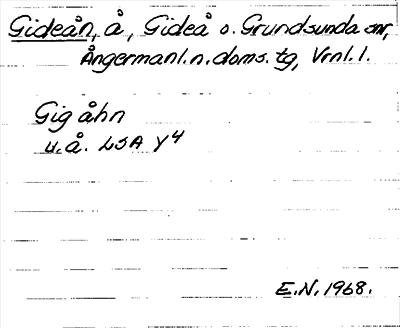 Gideån, å, Gideå o. Grundsunda snr,
Ångermanl.n.doms.tg, Vrnl.l.
Gig åhn
u.å. LSA Y4
E.N. 1968.